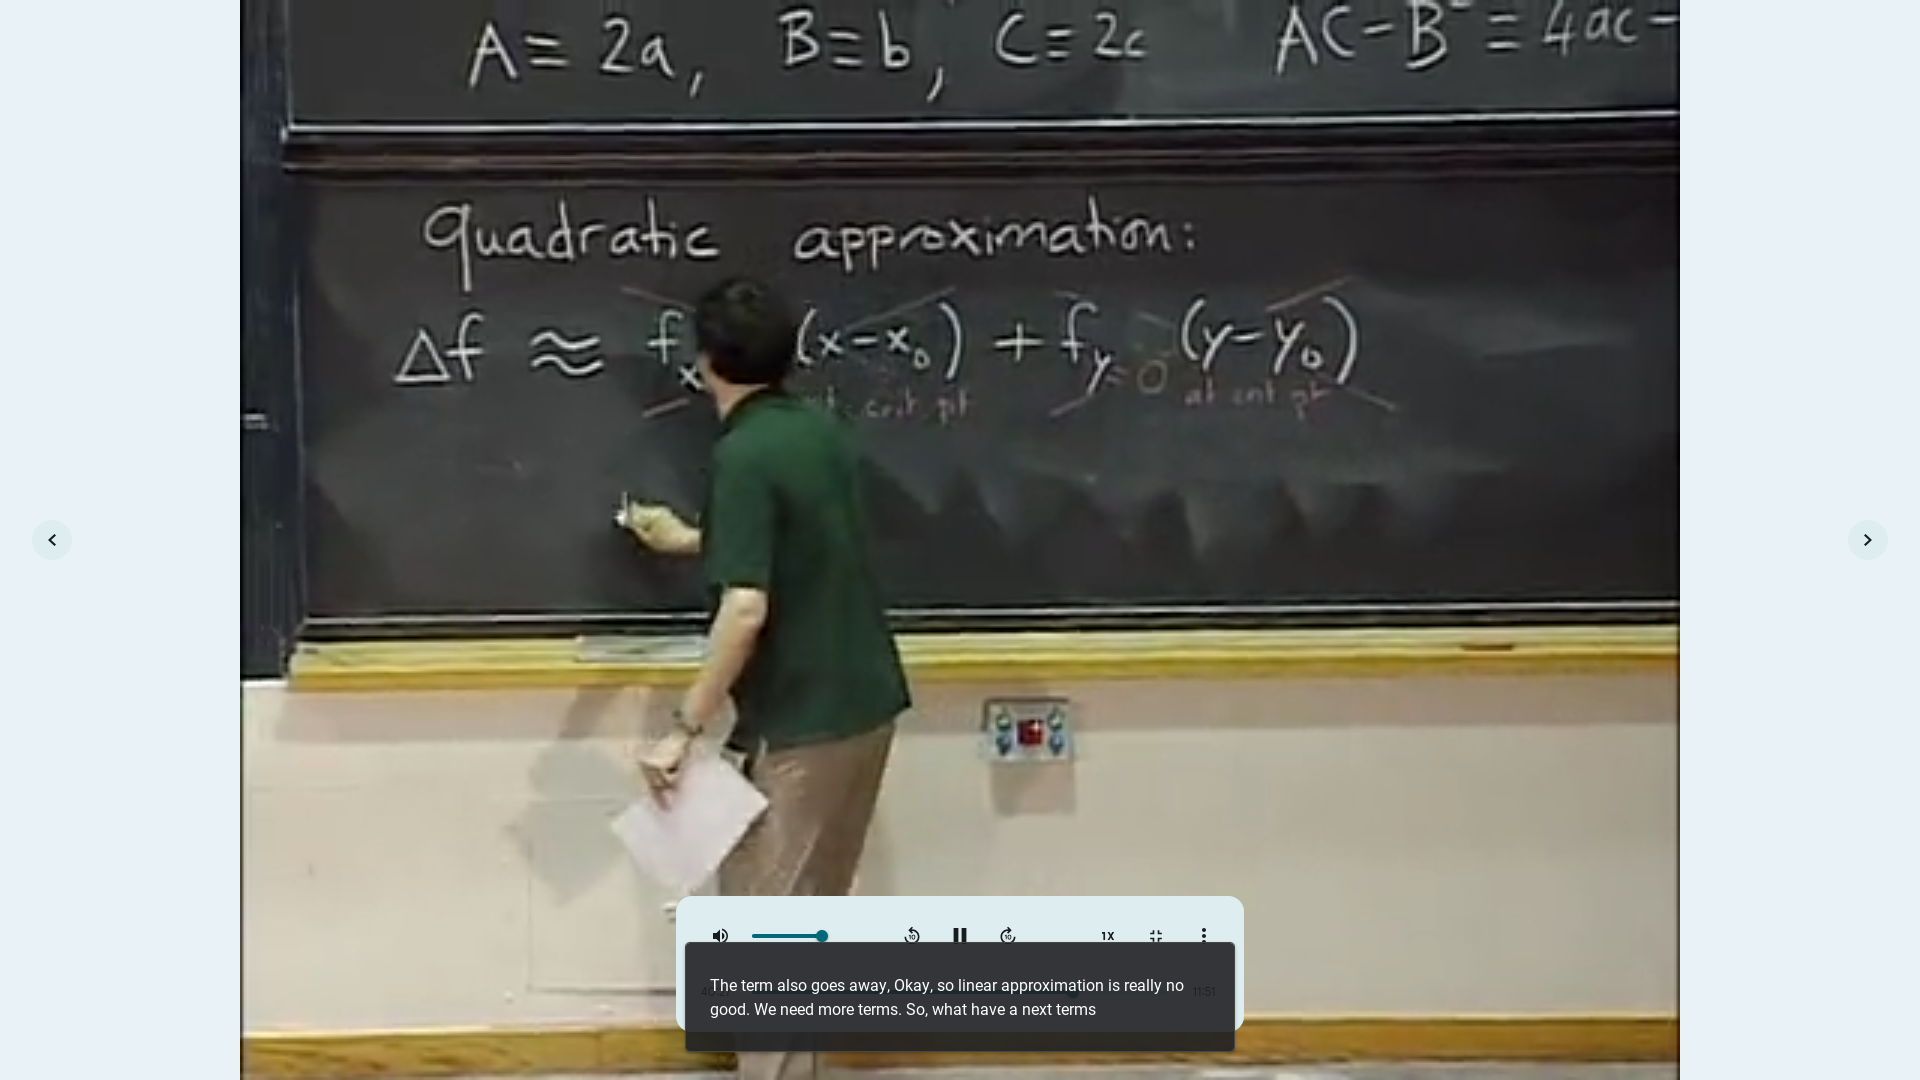 A ≡ 2a, B ≡ b, C ≡ 2c AC-B² ≡ 4ac -
quadratic approximation:
Δf ≈ fx (x-x₀) + fy (y-y₀)
crit pt = 0 at crit pt
1X
The term also goes away, Okay, so linear approximation is really no
good. We need more terms. So, what have a next terms